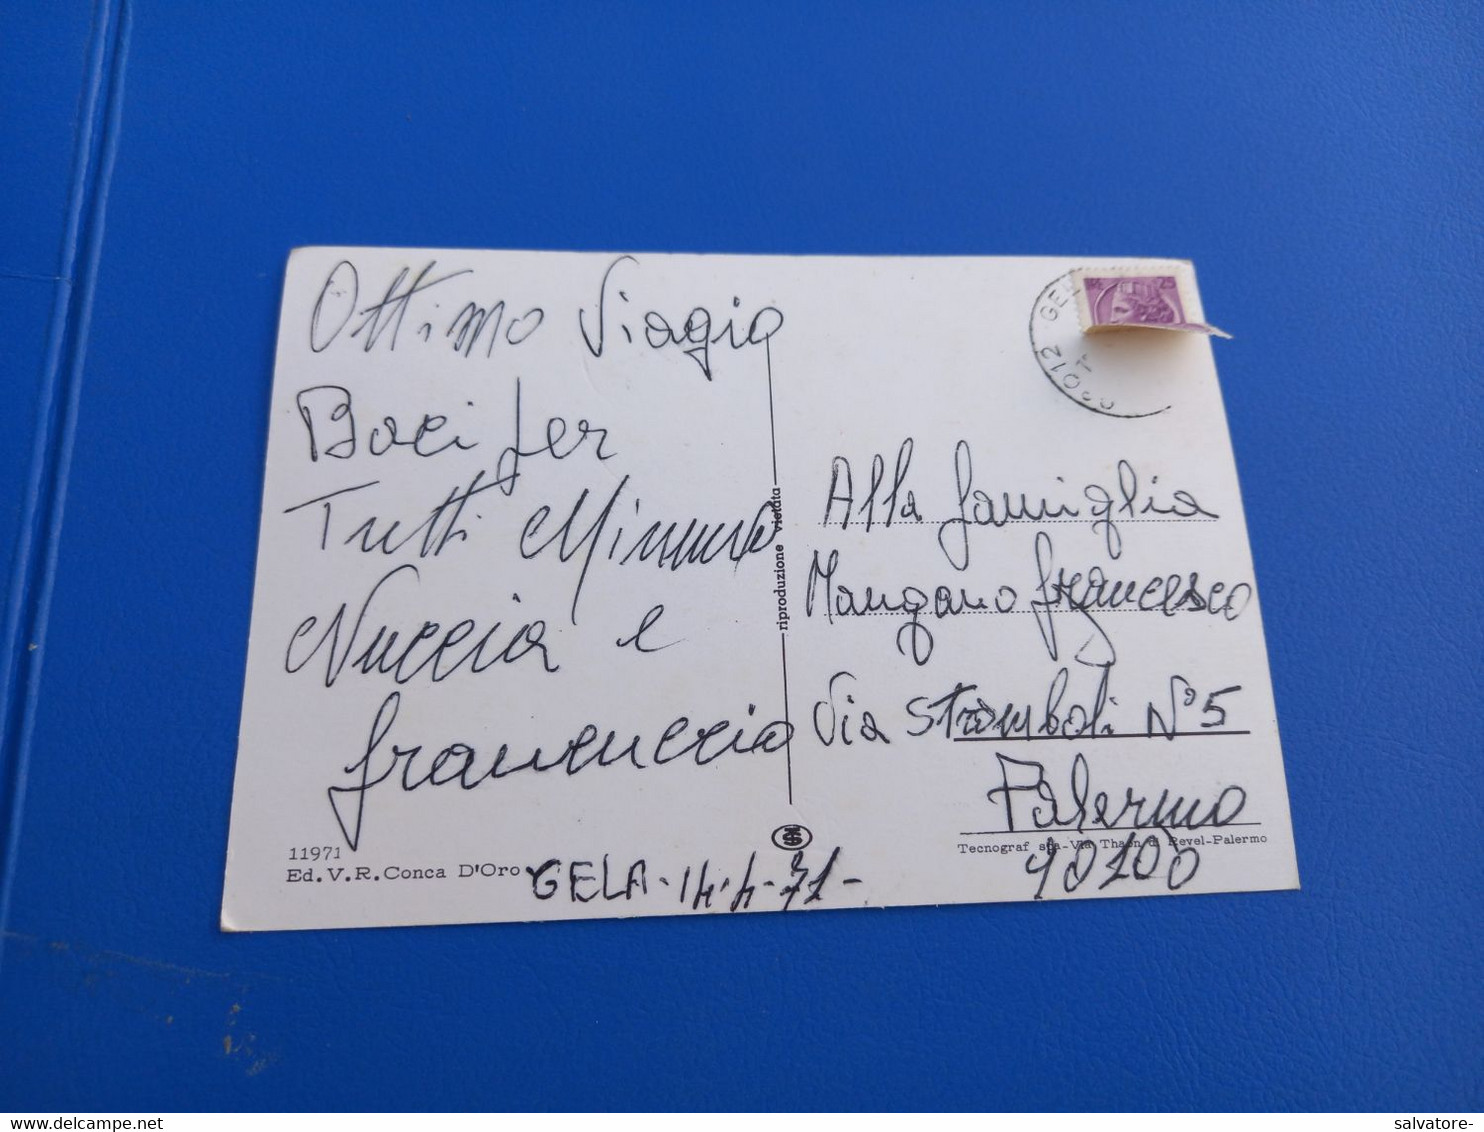 Ottimo Viagio
Baci per
Tutti Mimmo
Nuccia e
francuccio
11971
Ed.V.R.Conca D'Oro
GELA-14-4-71-
riproduzione vietata
93012 GEL
25
Alla famiglia
Mangano francesco
Via Stromboli N° 5
Palermo
Tecnograf spa-Via Thaon di Revel-Palermo
90100
salvatore-